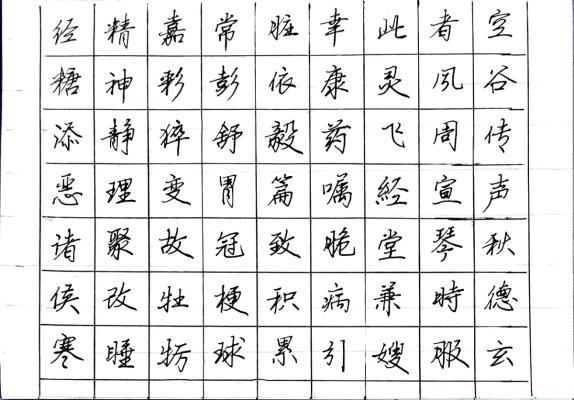 经 精 嘉 常 脏 幸 此 者 空
糖 神 彩 彭 依 康 灵 风 谷
添 静 猝 舒 毅 药 飞 周 传
恶 理 变 胃 篇 嘱 經 宣 声
诸 聚 故 冠 致 脆 堂 琴 秋
侯 改 牡 梗 积 病 兼 時 德
寒 睡 牡 球 累 引 嫂 服 玄